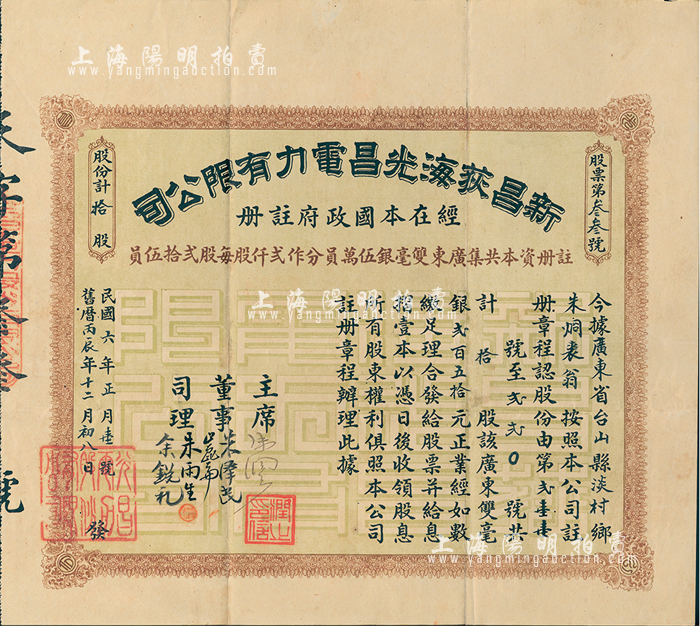 上海陽明拍賣
www.yangmingauction.com
股票第叁叁號
股份計拾股
新昌荻海光昌電力有限公司
經在本國政府註册
註册資本共集廣東雙毫銀伍萬員分作弍仟股每股弍拾伍員
今據廣東省台山縣淡村鄉
朱炯裘翁按照本公司註
册章程認股份由第弍壹壹
號至弍弍〇號共
計拾股該廣東雙毫
銀弍百五拾元正業經如數
繳足理合發給股票并給息
摺壹本以憑日後收領股息
所有股東權利俱照本公司
註册章程辦理此據
主席
董事朱澤民
司理朱雨生
余銳礼
民國六年正月壹號
舊曆丙辰年十二月初八日發
上海陽明拍賣
www.yangmingauction.com
上海陽明拍賣
www.yangmingauction.com
字第叁叁號